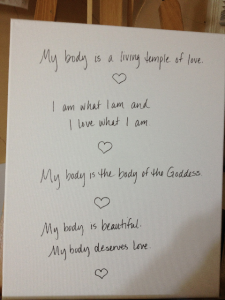 My body is a living temple of love.
I am what I am and
I love what I am.
My body is the body of the Goddess.
My body is beautiful.
My body deserves love.